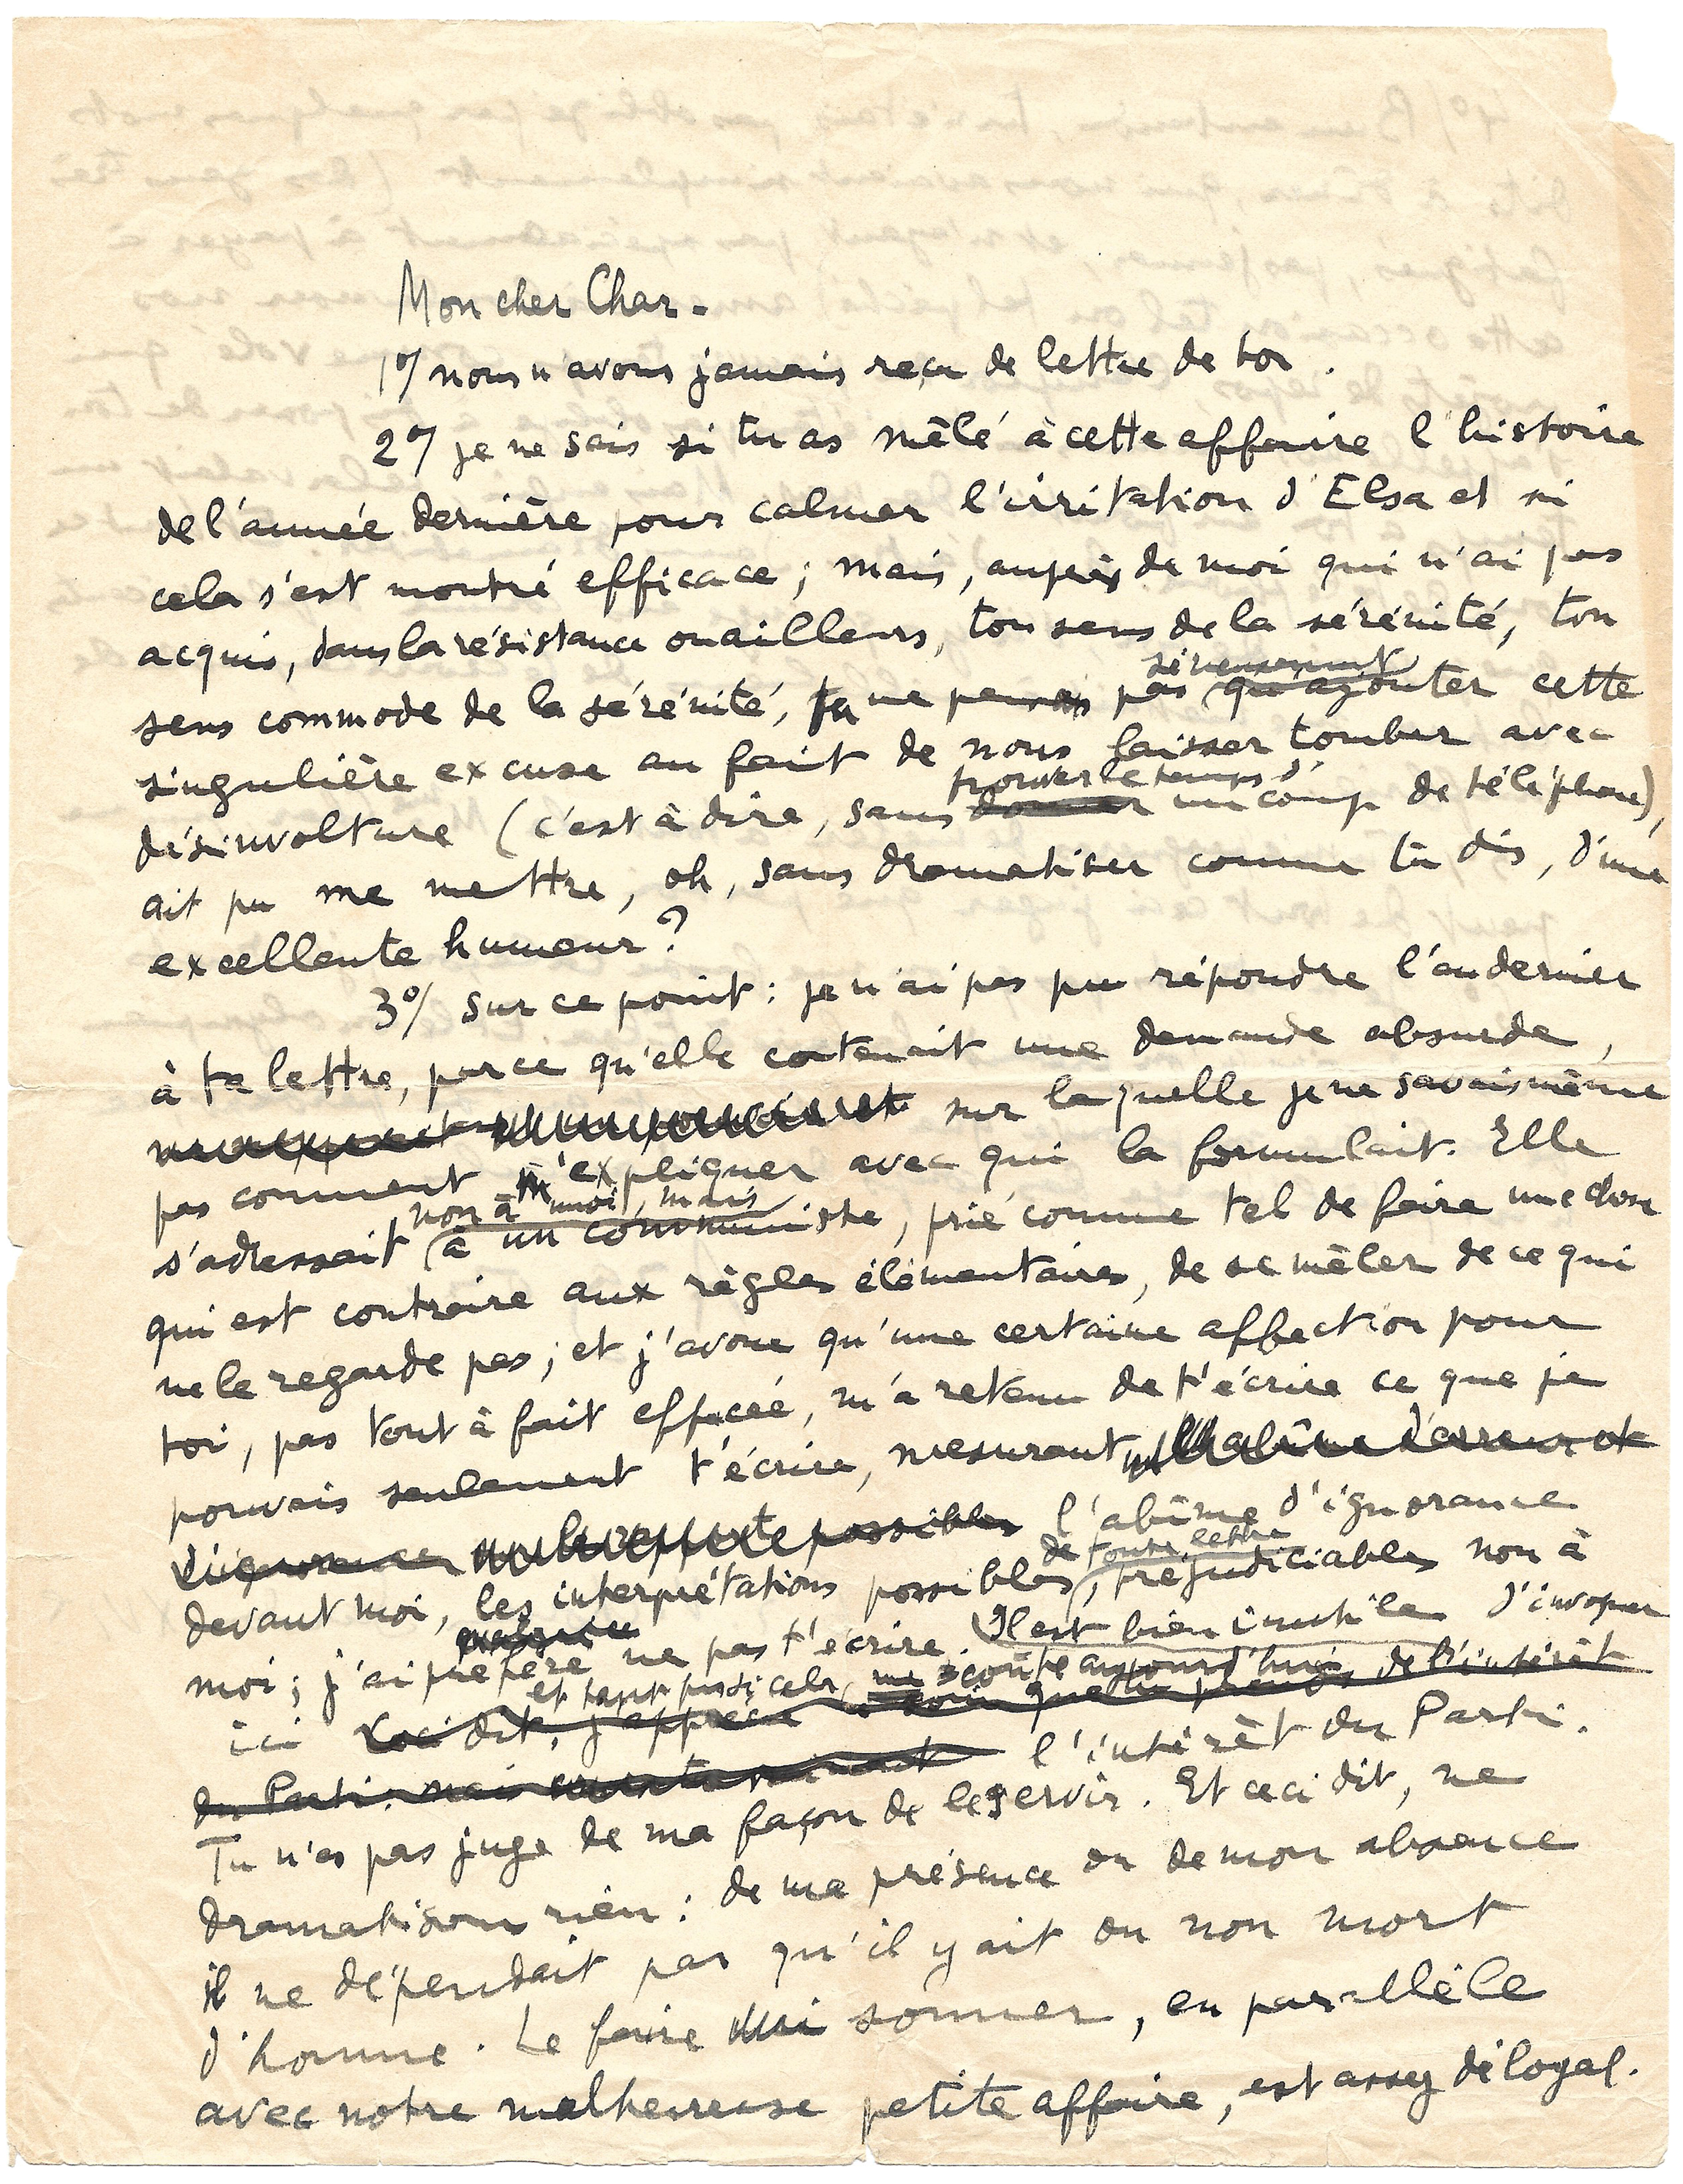 Mon cher Char -
1°/ nous n'avons jamais reçu de lettre de toi.
2°/ je ne sais si tu as mêlé à cette affaire l'histoire
de l'année dernière pour calmer l'irritation d'Elsa et si
cela s'est montré efficace ; mais, auprès de moi qui n'ai pas
acquis, dans la résistance ou ailleurs, ton sens de la sérénité, ton
sérieusement
sens commode de la sérénité, tu ne pensais pas qu'ajouter cette
singulière excuse au fait de nous laisser tomber avec
trouver le temps d'
désinvolture (c'est à dire, sans donner un coup de téléphone),
ait pu me mettre, oh, sans dramatiser comme tu dis, d'une
excellente humeur ?
3°/ sur ce point : je n'ai pas pu répondre l'an dernier
à ta lettre, parce qu'elle contenait une demande absurde,
sur laquelle je ne savais même
pas comment m'expliquer avec qui la formulait. Elle
non à moi, mais
s'adressait à un communiste, prié comme tel de faire une chose
qui est contraire aux règles élémentaires, de se mêler de ce qui
ne le regarde pas ; et j'avoue qu'une certaine affection pour
toi, pas tout à fait effacée, m'a retenu de t'écrire ce que je
pouvais seulement t'écrire, mesurant l'abîme d'erreur et
d'ignorance possibles l'abîme d'ignorance
de toute lettre
devant moi, les interprétations possibles, préjudiciables non à
moi ; j'ai préféré ne pas t'écrire. Il est bien inutile d'invoquer
et tant pis si cela
ici Ceci dit, j'apprécie le soin que tu prends de l'intérêt
du Parti, mais l'intérêt du Parti.
Tu n'es pas juge de ma façon de le servir. Et ceci dit, ne
dramatisons rien : de ma présence ou de mon absence
il ne dépendait pas qu'il y ait ou non mort
d'homme. Le faire sonner, en parallèle
avec notre malheureuse petite affaire, est assez déloyal.